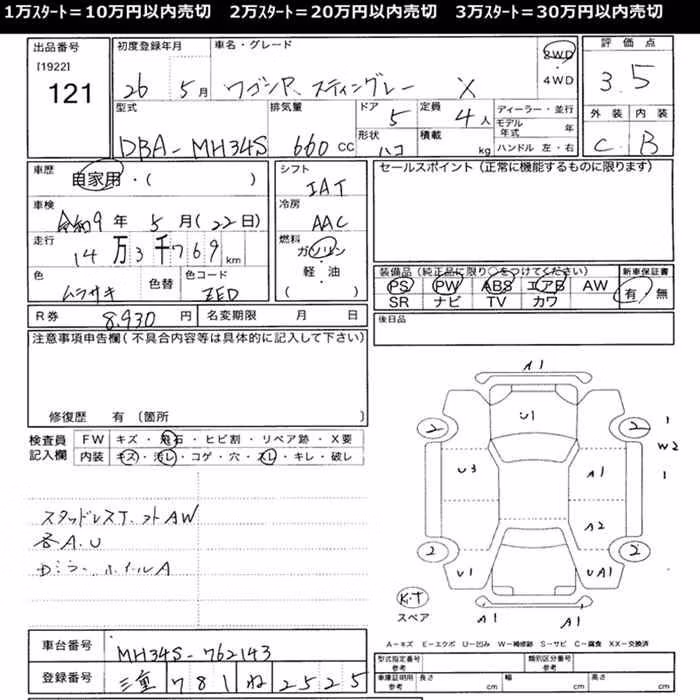 1万ｽﾀｰﾄ＝10万円以内売切 2万ｽﾀｰﾄ＝20万円以内売切 3万ｽﾀｰﾄ＝30万円以内売切
出品番号
[1922]
121
初度登録年月
26 5月
車名・グレード
ワゴンR スティングレー X
2WD
4WD
評価点
3.5
型式
DBA-MH34S
排気量
660 CC
ドア
5
定員
4人
形状
ハコ
積載
kg
ディーラー・並行
モデル年式 年
ハンドル 左・右
外装 内装
C B
車歴
自家用・( )
車検
令和9年5月(22日)
走行
14万3千769km
色
ムラサキ
色替
色コード
ZED
シフト
IAT
冷房
AAC
燃料
ガソリン
・
軽・油
( )
セールスポイント（正常に機能するものに限ります）
装備品（純正品に限り○をつけてください）
PS PW ABS エアB AW
SR ナビ TV カワ
新車保証書
有・無
R券 8,930円
名変期限 月 日
後日品
注意事項申告欄(不具合内容等は具体的に記入して下さい)
修復歴 有（箇所 ）
検査員
記入欄
FW キズ・飛石・ヒビ割・リペア跡・X要
内装 キズ・汚レ・コゲ・穴・スレ・キレ・破レ
スタッドレスT
AW
各A.U
A
A1
U1
2 2
1
W2
1
U3
A1
A2
2 2
U1 UA1
K・T
スペア
A1 A1
A－キズ E－エクボ U－凹み W－補修跡 S－サビ C－腐食 XX－交換済
車台番号
MH34S-762143
登録番号
三重 781 ね 2525
型式指定番号
参考
類別区分番号
参考
車庫証明用
参考
長さ cm 幅 cm 高さ cm